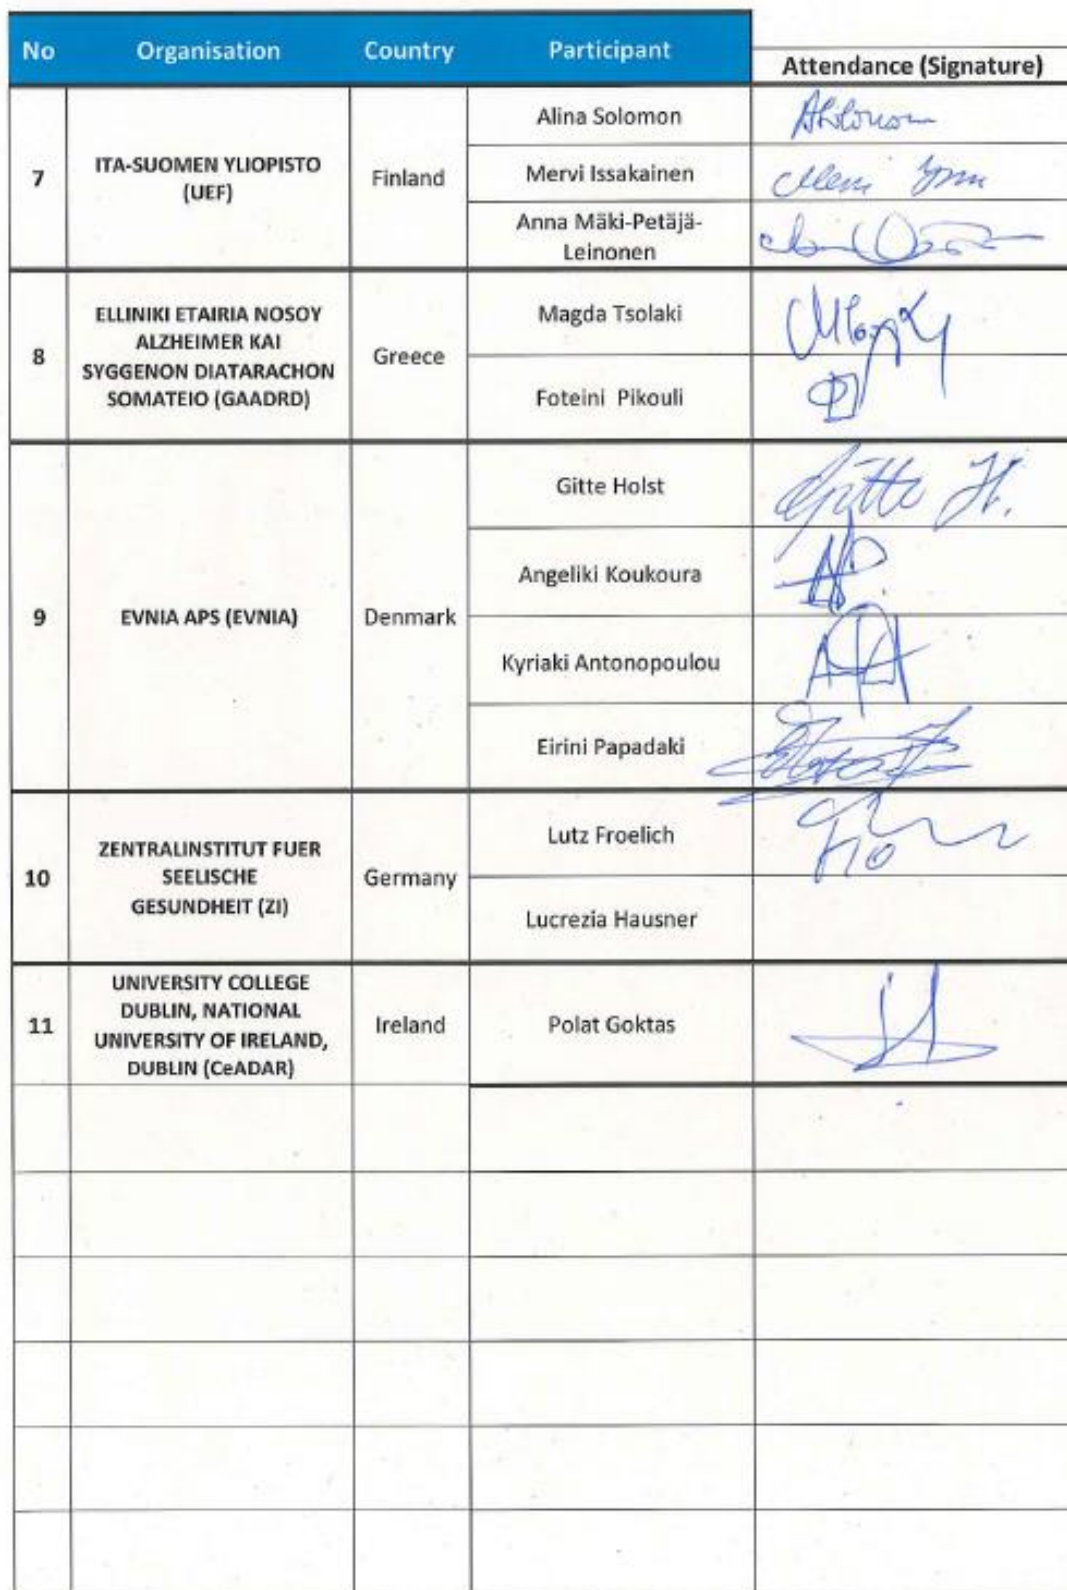 No Organisation Country Participant Attendance (Signature)
7 ITA-SUOMEN YLIOPISTO
(UEF)
Finland
Alina Solomon
Mervi Issakainen
Anna Mäki-Petäjä-
Leinonen
8 ELLINIKI ETAIRIA NOSOY
ALZHEIMER KAI
SYGGENON DIATARACHON
SOMATEIO (GAADRD)
Greece
Magda Tsolaki
Foteini Pikouli
9 EVNIA APS (EVNIA)
Denmark
Gitte Holst
Gitte H.
Angeliki Koukoura
Kyriaki Antonopoulou
Eirini Papadaki
10 ZENTRALINSTITUT FUER
SEELISCHE
GESUNDHEIT (ZI)
Germany
Lutz Froelich
Lucrezia Hausner
11 UNIVERSITY COLLEGE
DUBLIN, NATIONAL
UNIVERSITY OF IRELAND,
DUBLIN (CeADAR)
Ireland
Polat Goktas